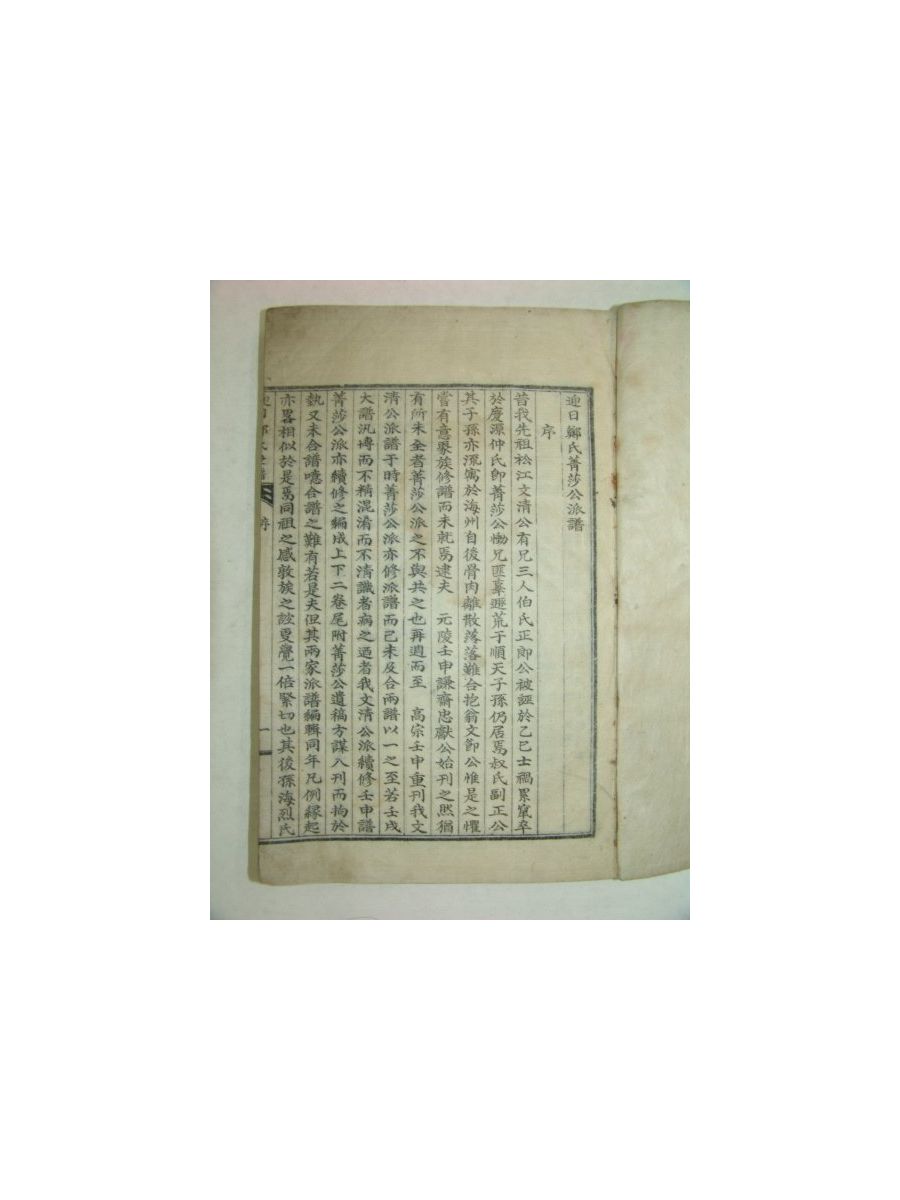 迎日鄭氏菁莎公派譜
序
昔我先祖松江文清公有兄三人伯氏正郞公被誣於乙巳士禍累竄卒
於慶源仲氏卽菁莎公慟兄匪辜遯荒于順天子孫仍居焉叔氏副正公
其子孫亦流寓於海州自後骨肉離散落落難合抱翁文節公惟是之懼
嘗有意聚族修譜而未就焉逮夫　元陵壬申謙齋忠獻公始刊之然猶
有所未全者菁莎公派之不與共之也再週而至　高宗壬申重刊我文
清公派譜于時菁莎公派亦修派譜而已未及合兩譜以一之至若壬戌
大譜汎博而不精混淆而不清識者病之迺者我文清公派續修壬申譜
菁莎公派亦續修之編成上下二卷尾附菁莎公遺稿方謀入刊而拘於
埶又未合譜噫合譜之難有若是夫但其兩家派譜編輯同年凡例緣起
亦畧相似於是焉同祖之感敦族之訟夏覺一倍緊切也其後孫海烈氏
序
一